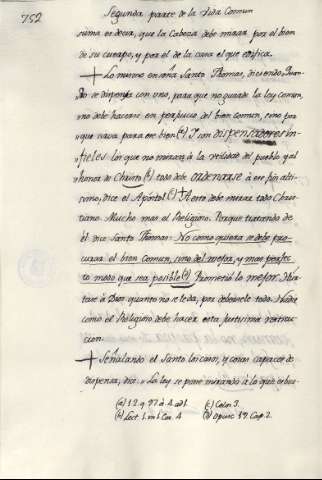 752 Segunda parte de la Vida Comun
suma es decir, que la Cabeza debe mirar por el bien
de su cuerpo, y por el de la cura el que edifica.
+ Lo mismo enseña Santo Thomas, diciendo, Quan-
do se dispensa con uno, para que no guarde la ley comun,
no debe hacerse en perjuicio del bien comun, sino por
que vaya para ese bien (a) Y son dispensadores in-
fieles los que no miran à la utilidad del pueblo y al
honor de Christo (b) todo debe ordenarse à ese fin alti-
simo, dice el Apóstol (c) A esto debe mirar todo Chris-
tiano. Mucho mas el Religioso. Porque tratando de
él dice Santo Thomas: No como quiera se debe pro-
curar el bien comun, sino del mejor, y mas perfec-
to modo que sea posible (d) Prometió lo mejor.
tase à Dios quanto no se le da, por debersele todo.
como el Religioso debe hacer esta
cion.
+ Señalando el Santo los casos, y cosas capaces de
dispensa, dice. La ley se pone mirando à lo que
(a) 1. 2. q. 97. à 4. ad 1. (c) Colos. 3.
(b) Lect. 1. in 1. Cor. 4 (d) Opusc. 19. Cap. 2.